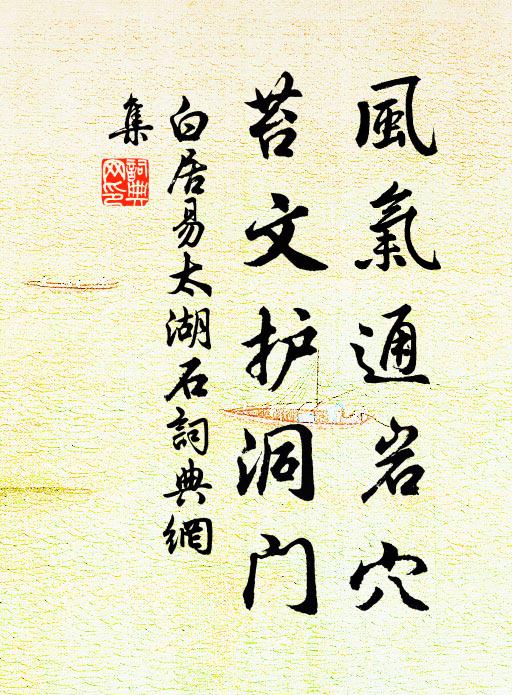 風氣通岩穴
苔文护洞门
白居易太湖石詞典網
集
詞典網印